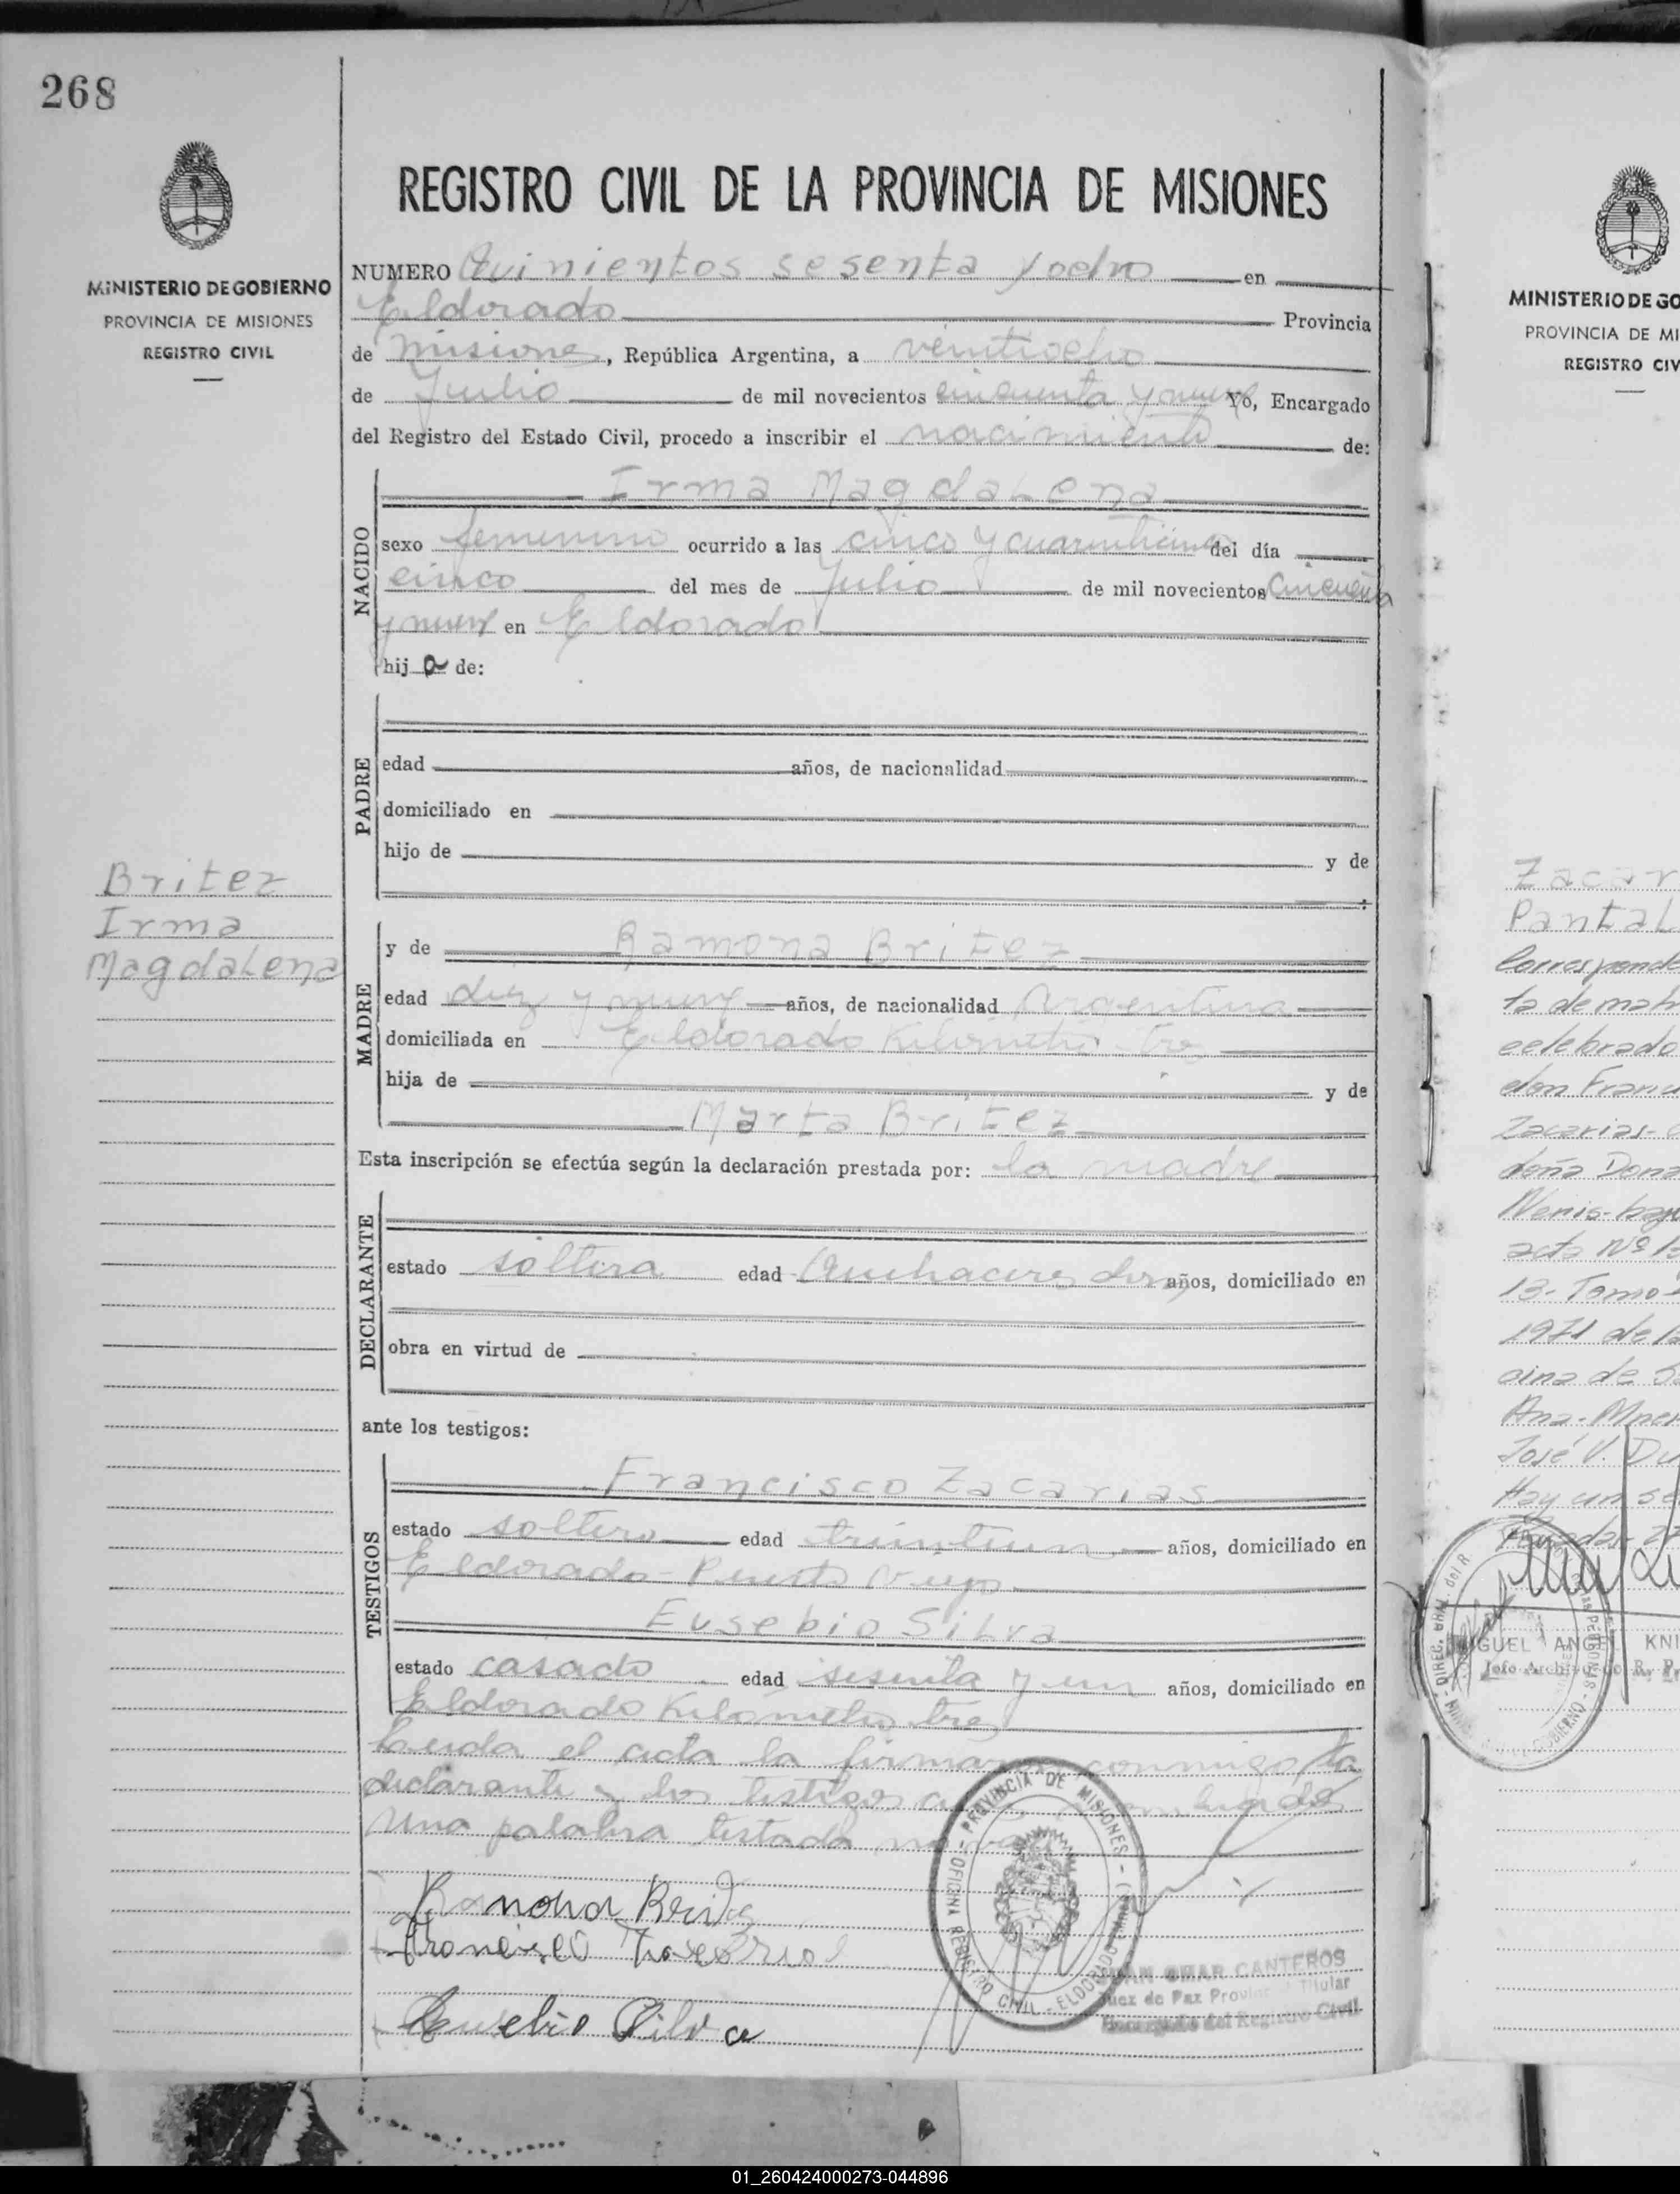 268
MINISTERIO DE GOBIERNO
PROVINCIA DE MISIONES
REGISTRO CIVIL
Britez
Irma
Magdalena
REGISTRO CIVIL DE LA PROVINCIA DE MISIONES
NUMERO Quinientos sesenta y ocho en
Eldorado Provincia
de Misiones, República Argentina, a veintiocho
de Julio de mil novecientos cincuenta y nueve Yo, Encargado
del Registro del Estado Civil, procedo a inscribir el nacimiento de:
NACIDO
Irma Magdalena
sexo femenino ocurrido a las cinco y cuarenticinco del día
cinco del mes de Julio de mil novecientos Cincuenta
y nueve en Eldorado
hij a de:
PADRE
edad años, de nacionalidad
domiciliado en
hijo de y de
MADRE
y de Ramona Britez
edad diez y nueve años, de nacionalidad Argentina
domiciliada en Eldorado Kilómetro tres
hija de y de
Marta Britez
Esta inscripción se efectúa según la declaración prestada por: la madre
DECLARANTE
estado soltera edad Quehaceres dom años, domiciliado en
obra en virtud de
ante los testigos:
TESTIGOS
Francisco Zacarias
estado soltero edad treintiun años, domiciliado en
Eldorado - Puerto Viejo
Eusebio Silva
estado casado edad sesenta y un años, domiciliado en
Eldorado Kilómetro tres
Leida el acta la firman conmigo la
declarante y los testigos
Una palabra testada no vale
Ramona Britez
Francisco Zacarias
Eusebio Silva
PROVINCIA DE MISIONES
OFICINA REGISTRO CIVIL - ELDORADO
OMAR CANTEROS
Juez de Paz Provincial Titular
Encargado del Registro Civil
MINISTERIO DE GO
PROVINCIA DE MI
REGISTRO CIV
Zacar
Pantal
Corresponde
ta de mat
celebrado
don Franc
Zacarias-
doña Dona
Nenis-bajo
acta Nº 1
13- Tomo-
1971 de la
cina de S
Ana-Mnes
José V. Du
Hay un se
MIGUEL ANGEL KNI
Jefe Archivo
01_260424000273-044896